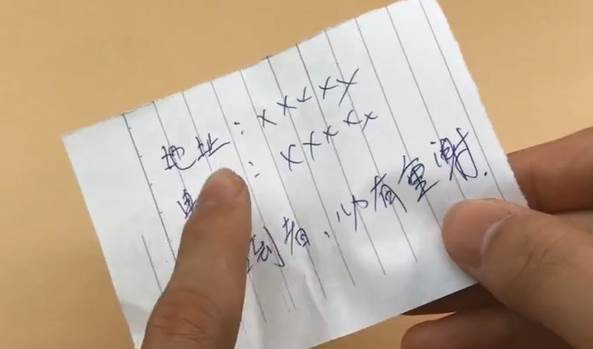 地址:xxxxx
:xxxxx
到者,必有重谢.